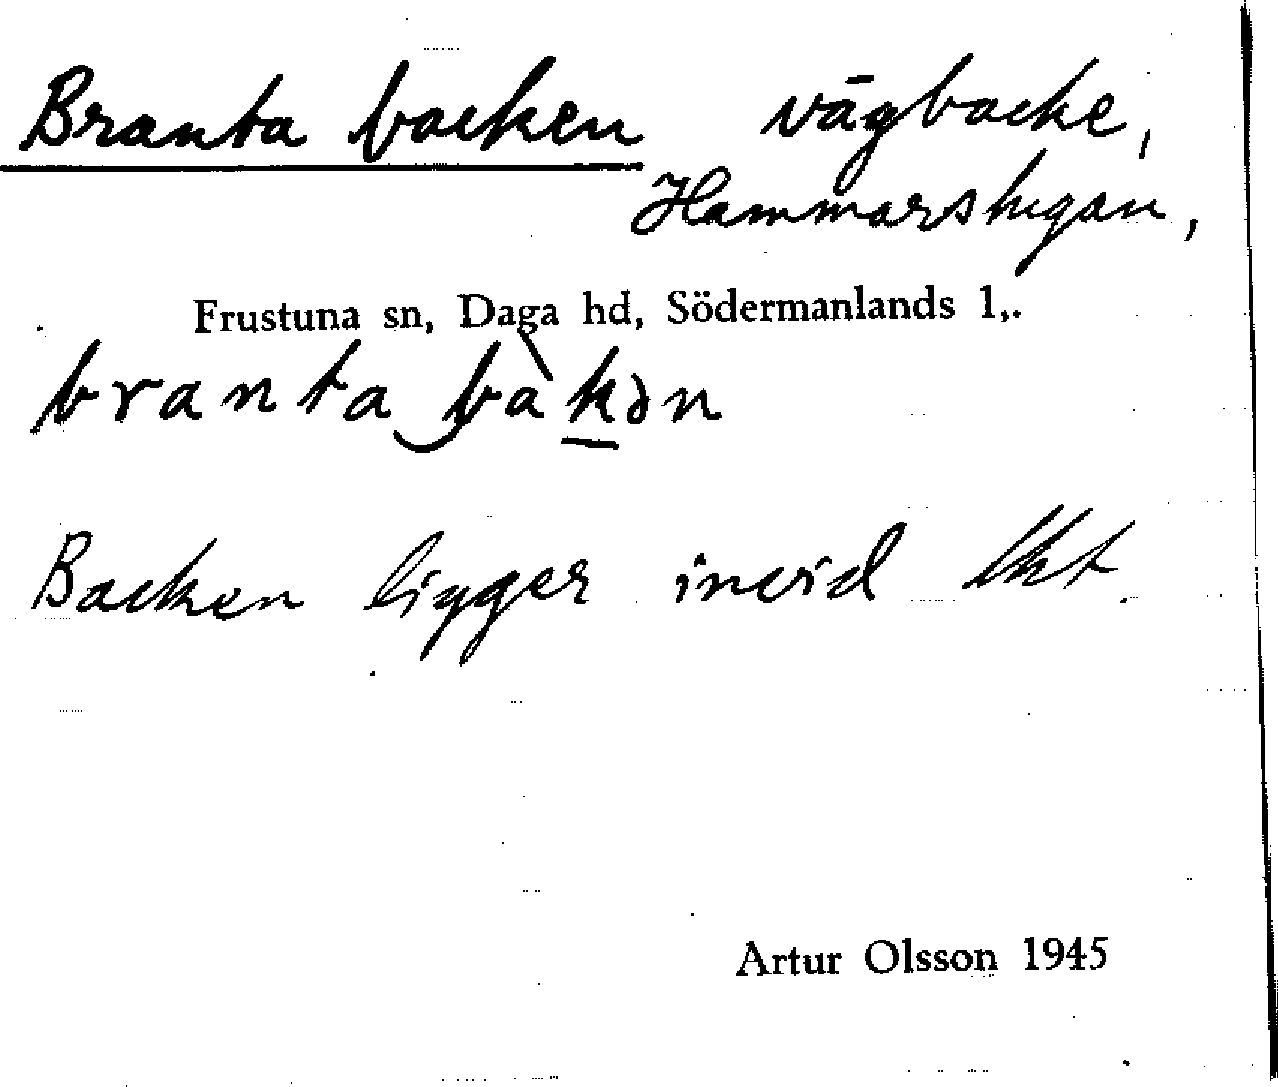 Branta backen vägbacke,
Hammarstugan,
Frustuna sn, Daga hd, Södermanlands l.
branta bàkən
Backen ligger invid lht.
Artur Olsson 1945